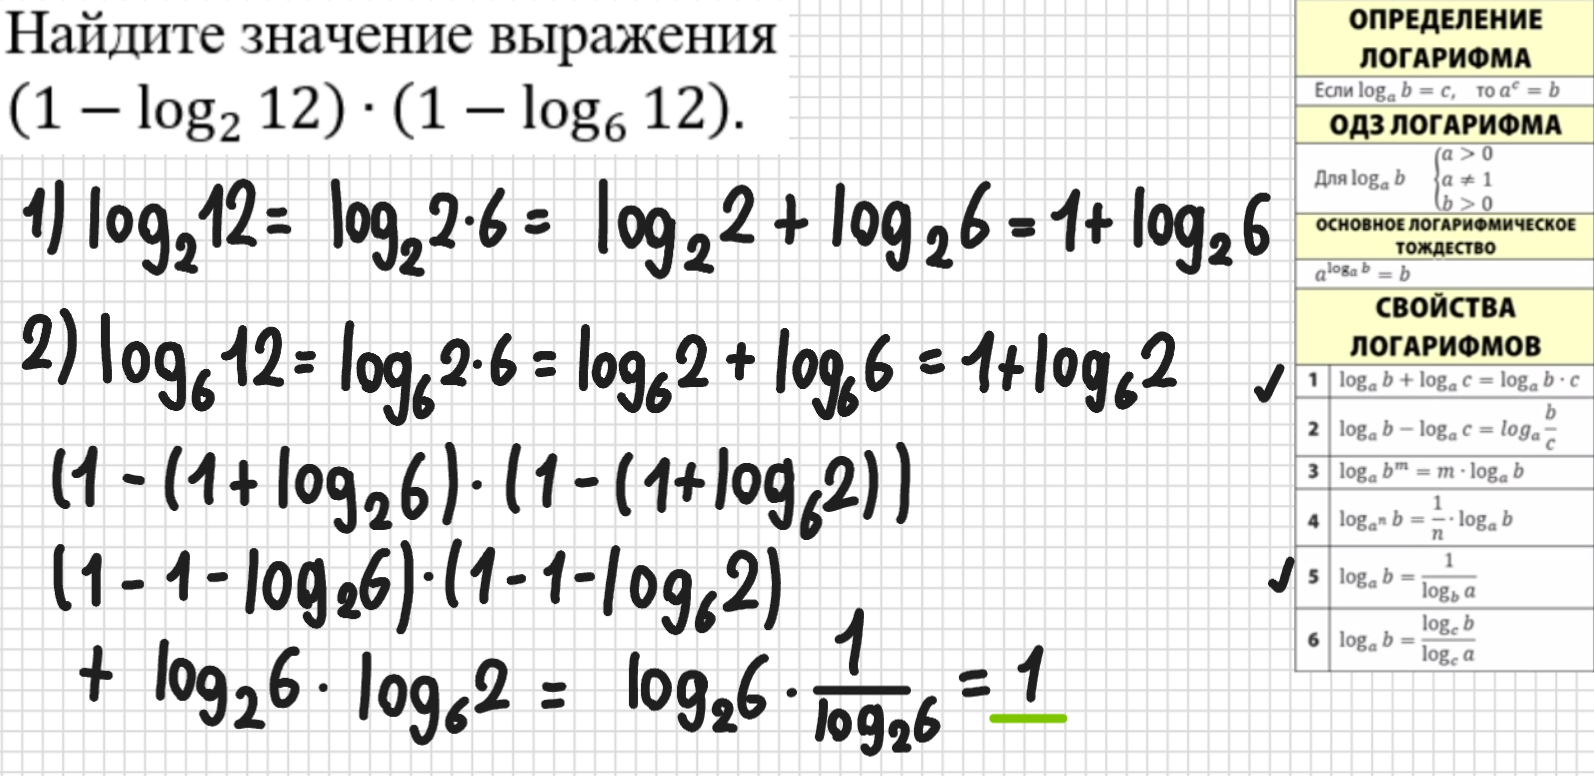 Найдите значение выражения
(1 − log₂ 12) · (1 − log₆ 12).
1) log₂12 = log₂2·6 = log₂2 + log₂6 = 1 + log₂6
2) log₆12 = log₆2·6 = log₆2 + log₆6 = 1 + log₆2
(1 - (1 + log₂6) · (1 - (1 + log₆2))
(1 - 1 - log₂6) · (1 - 1 - log₆2)
+ log₂6 · log₆2 = log₂6 · 1/log₂6 = 1
ОПРЕДЕЛЕНИЕ
ЛОГАРИФМА
Если logₐ b = c, то aᶜ = b
ОДЗ ЛОГАРИФМА
Для logₐ b { a > 0
a ≠ 1
b > 0
ОСНОВНОЕ ЛОГАРИФМИЧЕСКОЕ
ТОЖДЕСТВО
a^(logₐ b) = b
СВОЙСТВА
ЛОГАРИФМОВ
✓ 1 logₐ b + logₐ c = logₐ b · c
2 logₐ b − logₐ c = logₐ b/c
3 logₐ bᵐ = m · logₐ b
4 log_(aⁿ) b = 1/n · logₐ b
✓ 5 logₐ b = 1/log_b a
6 logₐ b = log_c b/log_c a